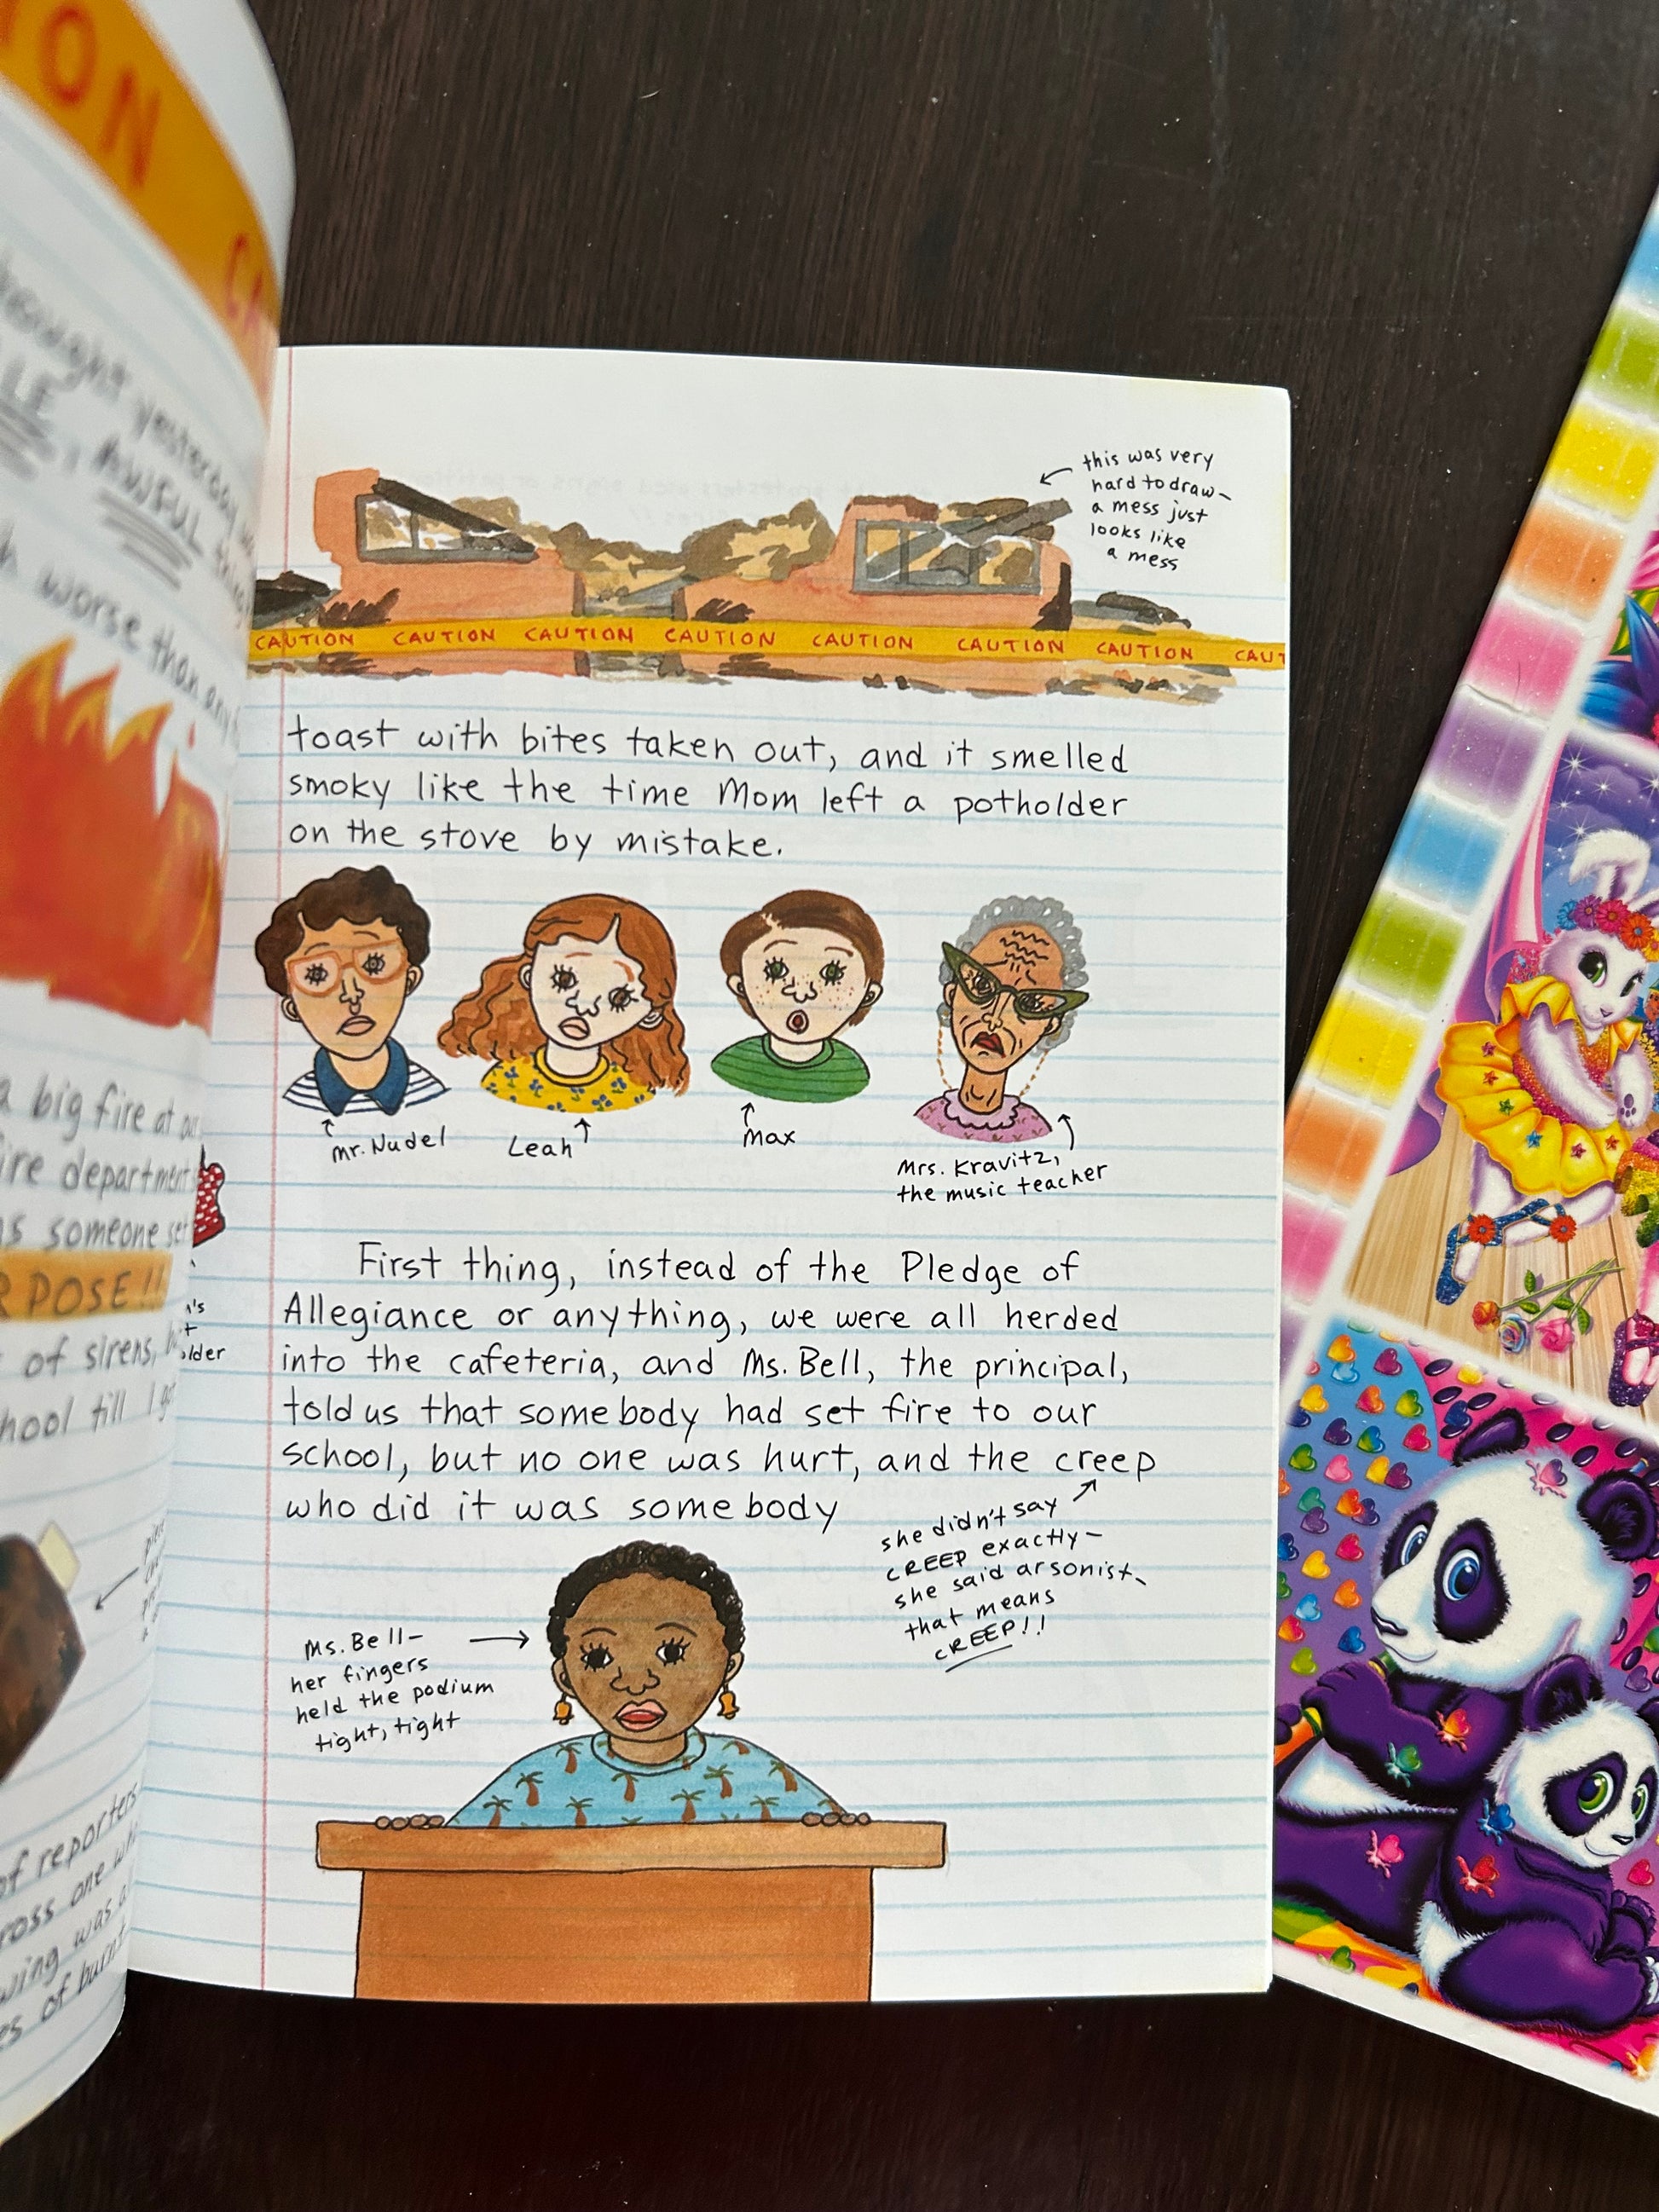 ION
CA
thought yesterday
LE, AWFUL
worse than any
this was very
hard to draw—
a mess just
looks like
a mess
CAUTION CAUTION CAUTION CAUTION CAUTION CAUTION CAUTION CAUT
toast with bites taken out, and it smelled
smoky like the time Mom left a potholder
on the stove by mistake.
Mr. Nudel
Leah
Max
Mrs. Kravitz,
the music teacher
a big fire at
fire department
as someone set
R POSE!!
of sirens,
hool till I
First thing, instead of the Pledge of
Allegiance or anything, we were all herded
into the cafeteria, and Ms. Bell, the principal,
told us that somebody had set fire to our
school, but no one was hurt, and the creep
who did it was somebody
she didn't say
CREEP exactly—
she said arsonist—
that means
CREEP!!
Ms. Bell—
her fingers
held the podium
tight, tight
of reporters
ross one
wing was a
es of burnt